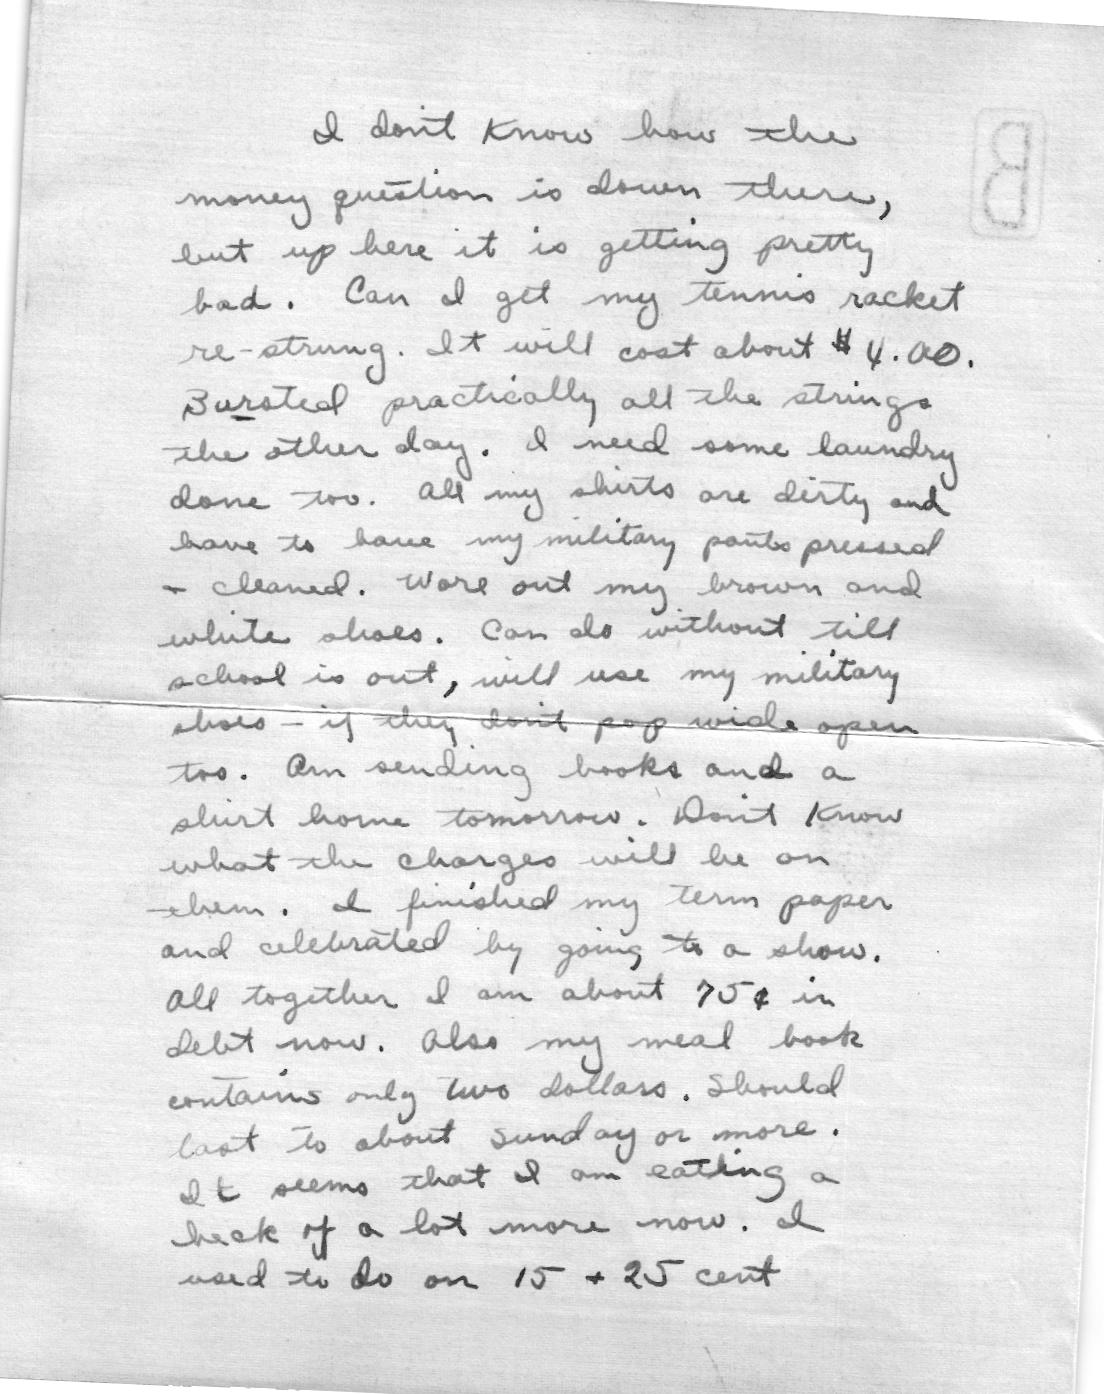 I don't Know how the
money question is down there,
but up here it is getting pretty
bad. Can I get my tennis racket
re-strung. It will cost about $4.00.
Bursted practically all the strings
the other day. I need some laundry
done too. All my shirts are dirty and
have to have my military pants pressed
+ cleaned. Wore out my brown and
white shoes. Can do without till
school is out, will use my military
shoes - if they don't pop wide open
too. Am sending books and a
shirt home tomorrow. Don't Know
what the charges will be on
them. I finished my term paper
and celebrated by going to a show.
All together I am about 75¢ in
debt now. Also my meal book
contains only two dollars. Should
last to about Sunday or more.
It seems that I am eating a
heck of a lot more now. I
used to do on 15 + 25 cent
B